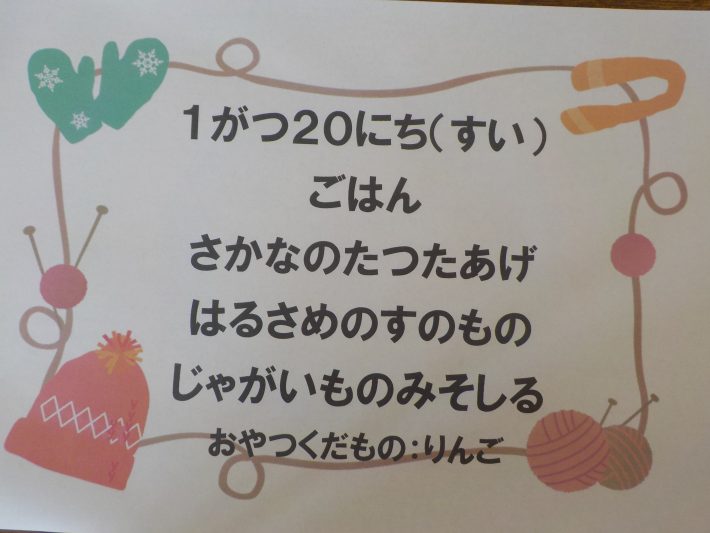 1がつ20にち(すい)
ごはん
さかなのたつたあげ
はるさめのすのもの
じゃがいものみそしる
おやつくだもの:りんご